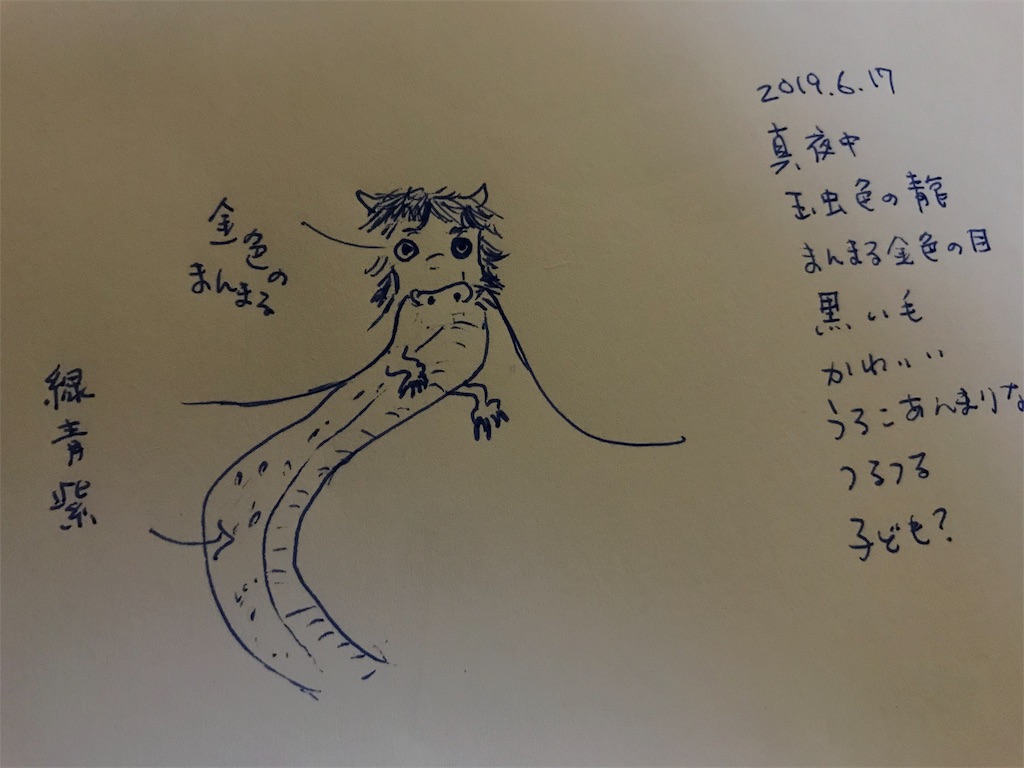 2019.6.17
真夜中
玉虫色の龍
まんまる金色の目
黒い毛
かわいい
うろこあんまりな
つるつる
子ども?
金色の
まんまる
緑
青
紫